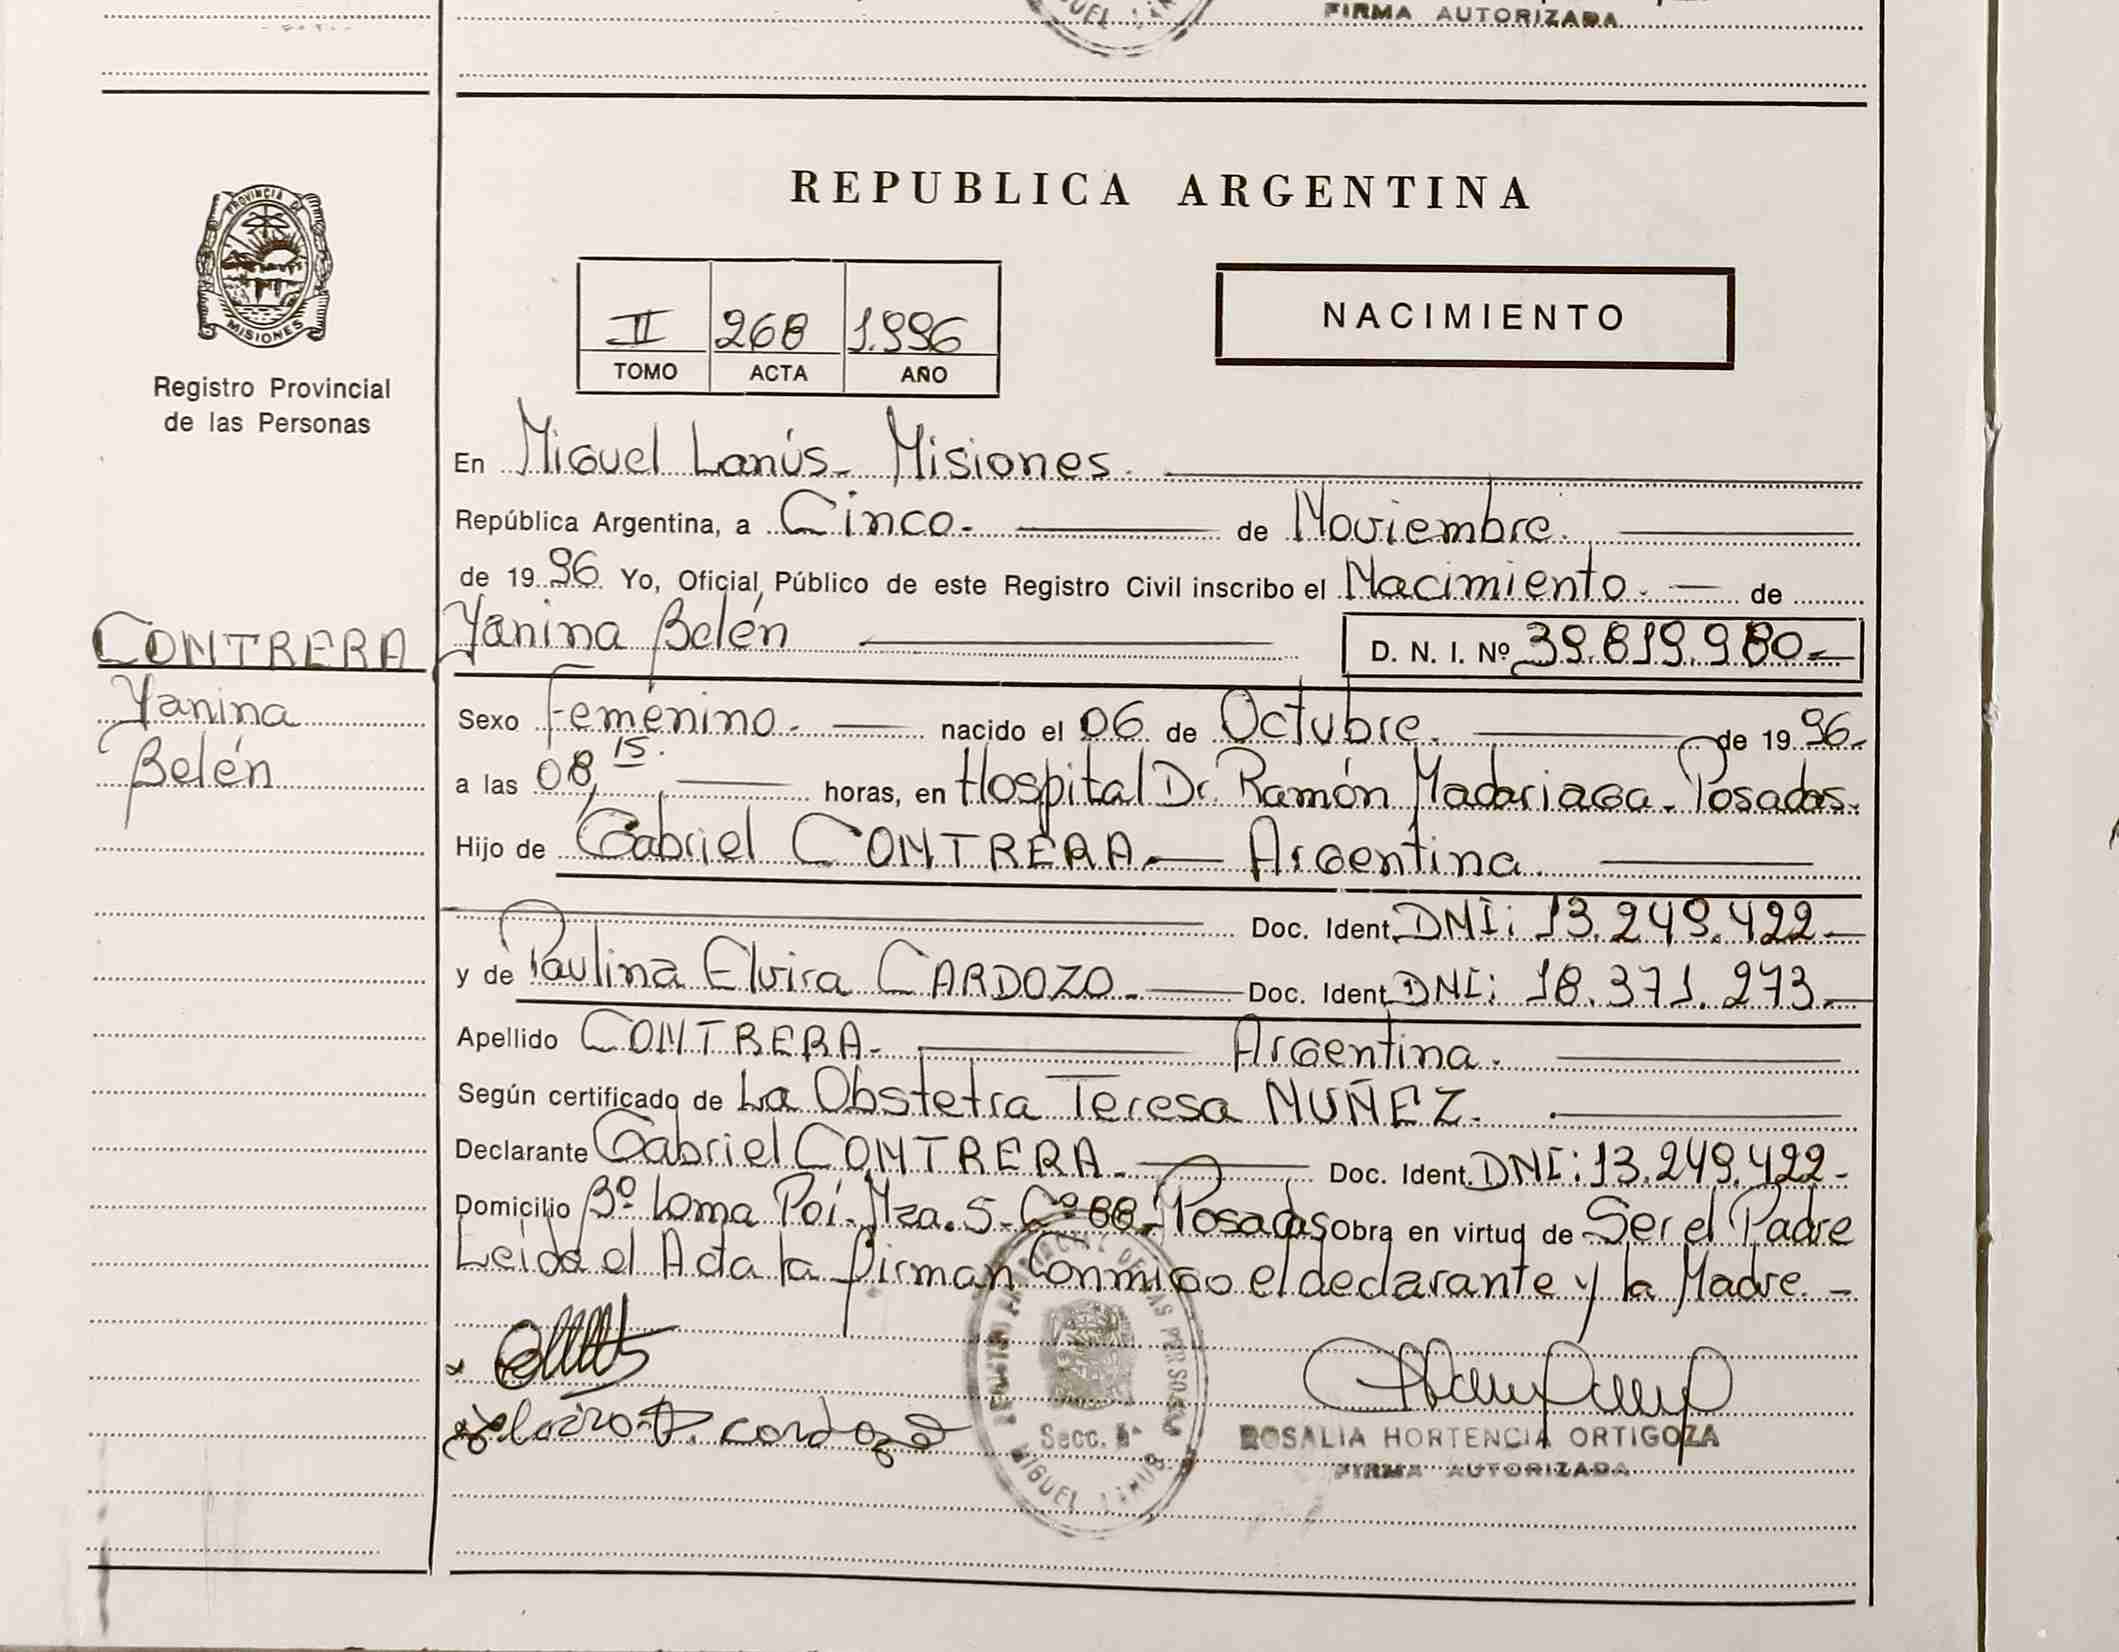 FIRMA AUTORIZADA
PROVINCIA DE
MISIONES
Registro Provincial
de las Personas
CONTRERA
Yanina
Belén
REPUBLICA ARGENTINA
II 268 1.996
TOMO ACTA AÑO
NACIMIENTO
En Miguel Lanús - Misiones.
República Argentina, a Cinco.- de Noviembre.
de 1996 Yo, Oficial Público de este Registro Civil inscribo el Nacimiento. — de
Yanina Belén D. N. I. Nº 39.819.980.-
Sexo Femenino. nacido el 06 de Octubre. de 1996.
a las 08,15. horas, en Hospital Dr. Ramón Madariaga - Posadas.
Hijo de Gabriel CONTRERA.— Argentina.
Doc. Ident. DNI: 13.249.422-
y de Paulina Elvira CARDOZO.— Doc. Ident. DNI: 18.371.273-
Apellido CONTRERA. Argentina.
Según certificado de La Obstetra Teresa NUÑEZ.
Declarante Gabriel CONTRERA. Doc. Ident. DNI: 13.249.422-
Domicilio Bº Loma Poí-Mza. 5- Cº 88- Posadas Obra en virtud de Ser el Padre
Leida el Acta la firman Conmigo el declarante y la Madre. -
cardozo
Secc. MIGUEL LANUS
ROSALIA HORTENCIA ORTIGOZA
FIRMA AUTORIZADA